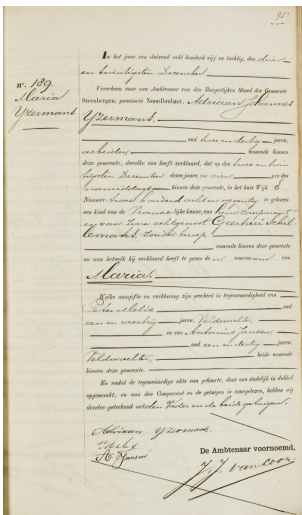 95
N°. 189.
Maria
Yzermans
In het jaar een duizend acht honderd vijf en tachtig, den drie
en twintigsten December
Verscheen voor ons Ambtenaar van den Burgerlijken Stand der Gemeente
Steenbergen, provincie Noordbrabant, Adriaan Johannes
Yzermans,
oud twee en dertig jaren,
arbeider, wonende binnen
deze gemeente, dewelke ons heeft verklaard, dat op den twee en twin
tigsten December dezes jaars, ten vier ure des
voormiddags binnen deze gemeente, in het huis Wijk E
Nummer twee honderd acht en is geboren
een kind van de Vrouwelijke kunne, van hem Comparant
en van zijne echtgenoot Geertrui Schil
lemans, zonder beroep
wonende binnen deze gemeente
en aan hetwelk hij verklaard heeft te geven den voornaam van
Maria.
Welke aangifte en verklaring zijn geschied in tegenwoordigheid van
Peter Melis oud
een en veertig jaren, Veldwachter,
en van Antonius Jansen,
oud een en dertig jaren,
Veldwachter, beide wonende
binnen deze gemeente.
En nadat de tegenwoordige akte van geboorte, door ons dadelijk in dubbel
opgemaakt, en aan den Comparant en de getuigen is voorgelezen, hebben wij
dezelve geteekend met den Vader en de beide getuigen.
Adriaan Yzermans
P Melis
A Jansen
De Ambtenaar voornoemd,
J. J. van Loon